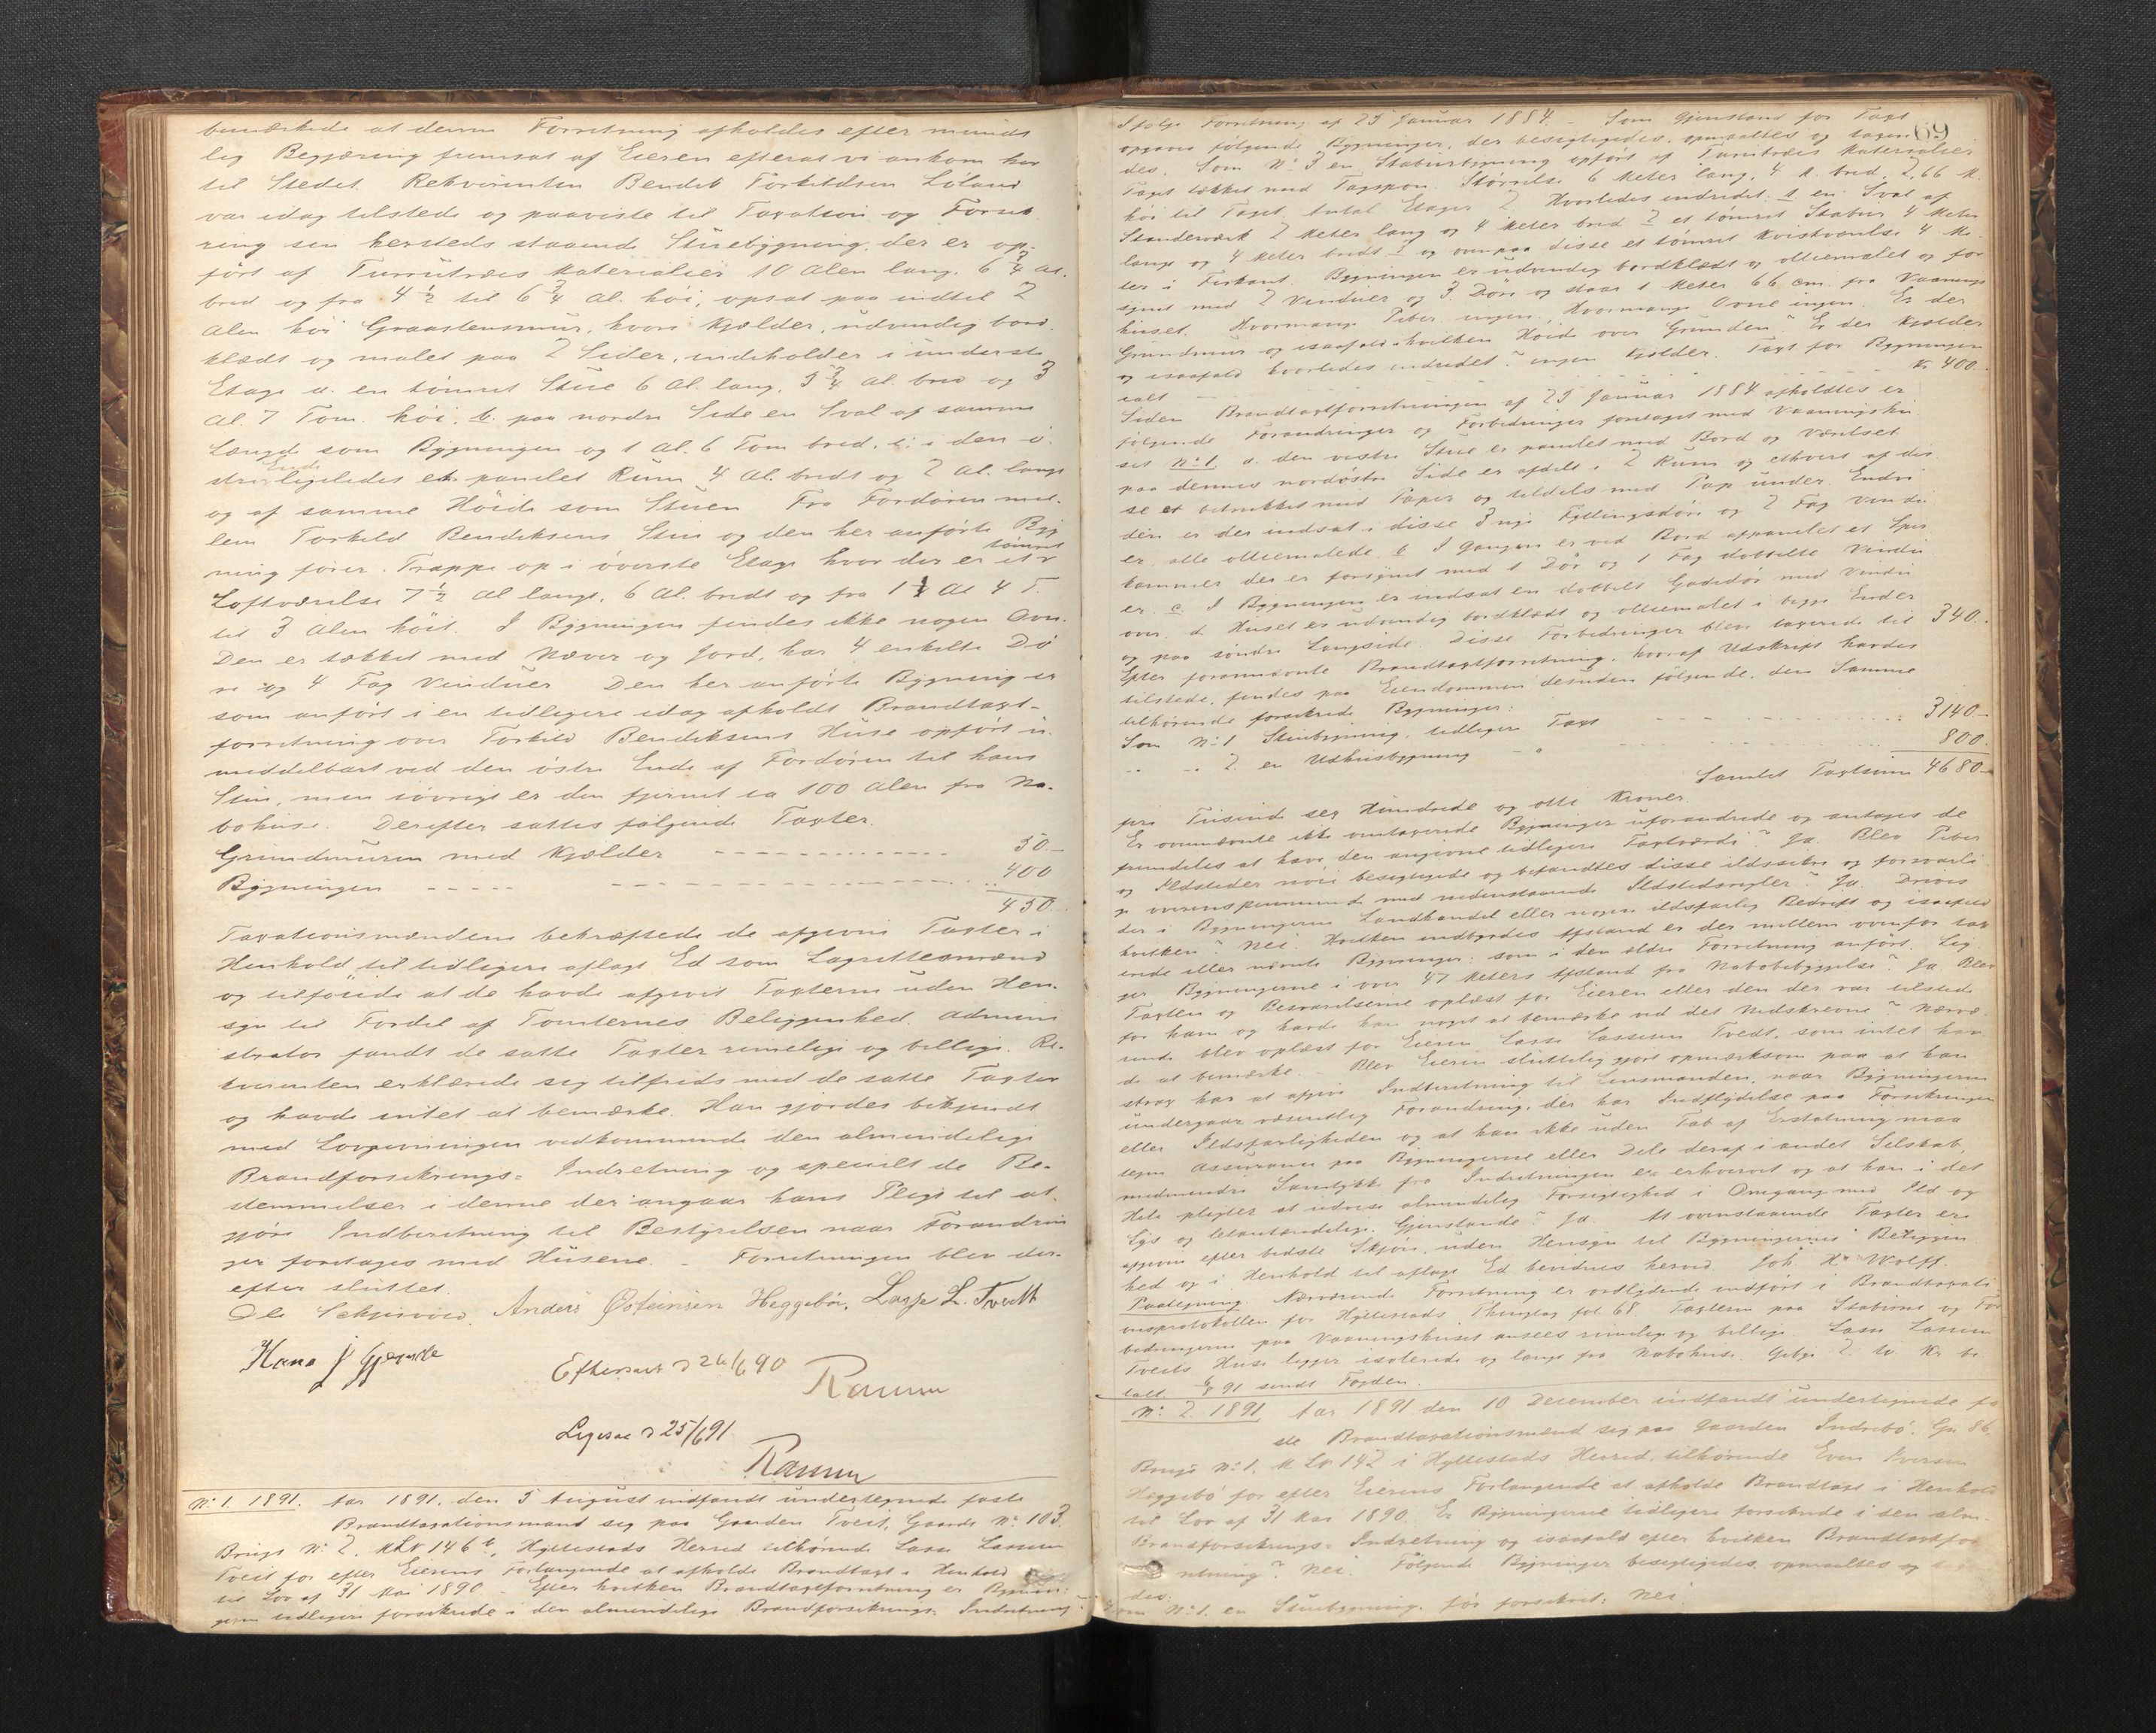 bemærkede at denne Forretning afholdes efter mundt
lig Begjæring fremsat af Eieren efterat vi ankom her
til Stedet. Rekvirenten Bendik Torkildsen Löland
var idag tilstede og paaviste til Taxation og Forsik
ring sin hersteds staaende Stuebygning, der er op-
ført af Furrutræes Materialier 10 Alen lang, 6 3/4 Al.
bred og fra 4 1/2 til 6 3/4 Al. høi, opsat paa indtil 2
Alen høi Graastensmur, hvori Kjælder, udvendig bord
klædt og malet paa 2 Sider, indeholder i underste
Etage a. en tømret Stue 6 Al. lang, 5 3/4 Al. bred og 3
Al. 7 Tom. høi, b. paa nordre Side en Sval af samme
Længde som Bygningen og 1 Al. 6 Tom bred, c. i den ö-
stre Ende ligeledes et panelet Rum 4 Al. bredt og 2 Al. langt
og af samme Høide som Stuen. Fra Fordøren mel-
lem Torkild Bendiksens Stue og den her anførte Byg
ning fører Trappe op i øverste Etage hvor der er et tømret
Loftværelse 7 1/2 Al langt, 6 Al. bredt og fra 1 Al 4 T.
til 3 Alen höit. I Bygningen findes ikke nogen Ovn.
Den er tækket med Næver og Jord, har 4 enkelte Dö
re og 4 Fag Vinduer. Den her anførte Bygning er
som anført i en tidligere idag afholdt Brandtaxt-
forretning over Torkild Bendiksens Huse opført u-
middelbart ved den østre Ende af Fordøren til hans
Stue, men iøvrigt er den fjernet ca 100 Alen fra Na-
bohuse. Derefter sattes følgende Taxter.
Grundmuren med Kjælder - - - 50.-
Bygningen - - - 400
450.
Taxationsmændene bekræftede de afgivne Taxter i
Henhold til tidligere aflagt Ed som Lagrettesmænd
og tilföiede at de havde afgivet Taxterne uden Hen-
syn til Fordel af Tomternes Beliggenhed. Admini
strator fandt de satte Taxter rimelige og billige. Re-
kvirenten erklærede sig tilfreds med de satte Taxter
og havde intet at bemærke. Han gjordes bekjendt
med Lovgivningen vedkommende den almindelige
Brandforsikrings-Indretning og specielt de Be-
stemmelser i denne der angaar hans Pligt til at
gjøre Indberetning til Bestyrelsen naar Forandrin
ger foretages med Husene. - Forretningen blev der-
efter sluttet.
Anders Østeinsen Heggebø. Lasse L. Tveit
Hans J Gjerde
Efterseet d 26/6 90
Ligesaa d 25/6 91
No 1. 1891. Aar 1891, den 5 August indfandt undertegnede faste
Brandtaxationsmænd sig paa Gaarden Tveit, Gaards No 103,
Brugs No 2, M.L.No 146 b, Hyllestads Herred tilhørende Lasse Lassen
Tveit for efter Eierens Forlangende at afholde Brandtaxt i Henhold
til Lov af 31 Mai 1890. - Efter hvilken Brandtaxtforretning er Bygnin-
gerne tidligere forsikrede i den almindelige Brandforsikrings-Indretning?
69
Ifølge Forretning af 25 Januar 1884. - Som Gjenstand for Taxt
opgaves følgende Bygninger, der besigtigedes, opmaaltes og taxere
des. Som No 3 en Stabursbygning opført af Furutræes Materialier
Taget tækket med Tagspon. Størrelse 6 Meter lang, 4 M. bred, 2,66 M.
høi til Taget. Antal Etager 2. Hvorledes indredet: 1 en Sval af
Standerværk 2 Meter lang og 4 Meter bred 2 et tømret Stabur 4 Meter
langt og 4 Meter bredt 3 og ovenpaa disse et tømret Kvistværelse 4 Me-
ter i Firkant. Bygningen er udvendig bordklædt og oliemalet og for
synet med 2 Vinduer og 3 Døre og staar 1 Meter 66 cm. fra Vaanings
huset. Hvormange Piber ingen, Hvormange Ovne ingen. Er der
Grundmur og isaafald hvilken Høide over Grunden? Er der Kjælder
og isaafald hvorledes indredet? ingen Kjælder. Taxt for Bygningen
ialt - - - Kr 400.
Siden Brandtaxtforretningen af 25 Januar 1884 afholdtes er
følgende Forandringer og Forbedringer foretaget med Vaaningshu
set No 1. a. den vestre Stue er panelet med Bord og Værelset
paa dennes nordøstre Side er afdelt i 2 Rum og ethvert af dis
se er betrukket med Papir og tildels med Pap under. Endvi
dere er der indsat i disse 3 nye Fyllingsdøre og 2 Fag Vindu
er, alle oliemalede. b I Gangen er ved Bord afpanelet et Spis
kammer der er forsynet med 1 Dör og 1 Fag dobbelte Vindu
er. c. I Bygningen er indsat en dobbelt Gadedör med Vindu
over. d. Huset er udvendig bordklædt og oliemalet i begge Ender
og paa söndre Langside. Disse Forbedringer blev taxerede til 340.
Efter forannævnte Brandtaxtforretning, hvoraf Udskrift havdes
tilstede, findes paa Eiendommen desuden følgende, den Samme
tilhørende forsikrede Bygninger:
Som No 1 Stuebygning, tidligere Taxt - - - 3140.-
.. .. 2 en Udhusbygning - - - 800.
Samlet Taxtsum 4680.-
fire Tusind sex Hundrede og otti Kroner.
Er ovennævnte ikke omtaxerede Bygninger uforandrede og antages de
fremdeles at have den angivne tidligere Taxtværdi? Ja. Blev Piber
og Ildsteder nöie besigtigede og befandtes disse ildssikre og forsvarli
ge overensstemmende med nedenstaaende Ildstedsregler? Ja. Drives
der i Bygningerne Landhandel eller nogen ildsfarlig Bedrift og isaafald
hvilken? Nei. Hvilken indbyrdes Afstand er der mellem ovenfor tax
erede eller nævnte Bygninger: som i den ældre Forretning anført. Lig
ger Bygningerne i over 47 Meters Afstand fra Nabobebyggelse? Ja. Blev
Taxten og Besvarelserne oplæst for Eieren eller den der var tilstede
for ham og havde han noget at bemærke ved det Nedskrevne? Nærvæ-
rende blev oplæst for Eieren Lasse Lassesen Tvedt, som intet hav
de at bemærke. - Blev Eieren sluttelig gjort opmærksom paa at han
strax har at afgive Indberetning til Lensmanden, naar Bygningerne
undergaar væsentlig Forandring, der har Indflydelse paa Forsikringen
eller Ildsfarligheden og at han ikke uden Tab af Erstatning maa
tegne Assurance paa Bygningerne eller Dele deraf i andet Selskab,
medmindre Samtykke fra Indretningen er erhvervet og at han i det
Hele pligter at udvise almindelig Forsigtighed i Omgang med Ild og
Lys og letantændelige Gjenstande? Ja. At ovenstaaende Taxter er
afgivne efter bedste Skjøn, uden Hensyn til Bygningernes Beliggen
hed og i Henhold til aflagt Ed bevidnes herved. Joh. Hr Wolff.
Paategning. Nærværende Forretning er ordlydende indført i Brandtaxati
onsprotokollen for Hyllestads Thinglag fol 68. Taxterne paa Staburet og For
bedringerne paa Vaaningshuset ansees rimelige og billige. Lasse Lassen
Tveits Huse ligger isolerede og langt fra Nabohuse. Gebyr 2. to Kr be
talt. 6/8 91 sendt Fogden.
No 2. 1891 Aar 1891 den 10 December indfandt undertegnede fa
ste Brandtaxationsmænd sig paa Gaarden Indrebö, Gn 86,
Brugs No 1, M.Lo 142 i Hyllestads Herred, tilhørende Even Iversen
Heggebö for efter Eierens Forlangende at afholde Brandtaxt i Henhold
til Lov af 31 Mai 1890. Er Bygningerne tidligere forsikrede i den alm.
Brandforsikrings-Indretning og isaafald efter hvilken Brandtaxtfor
retning? Nei. Følgende Bygninger besigtigedes, opmaaltes og
des:
Som No 1. en Stuebygning, før forsikret: Nei.